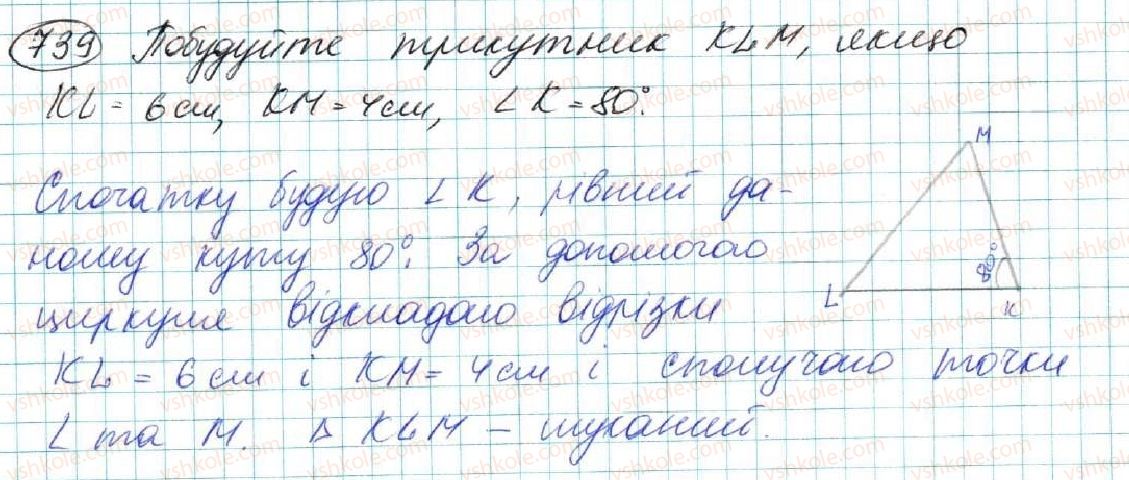 739 Побудуйте трикутник KLM, якщо
KL = 6 см, KM = 4 см, ∠K = 80°.
Спочатку будую ∠K, рівний да-
ному куту 80°. За допомогою
циркуля відкладаю відрізки
KL = 6 см і KM = 4 см і сполучаю точки
L та M. Δ KLM – шуканий.
M
80°
L
K
vshkole.com